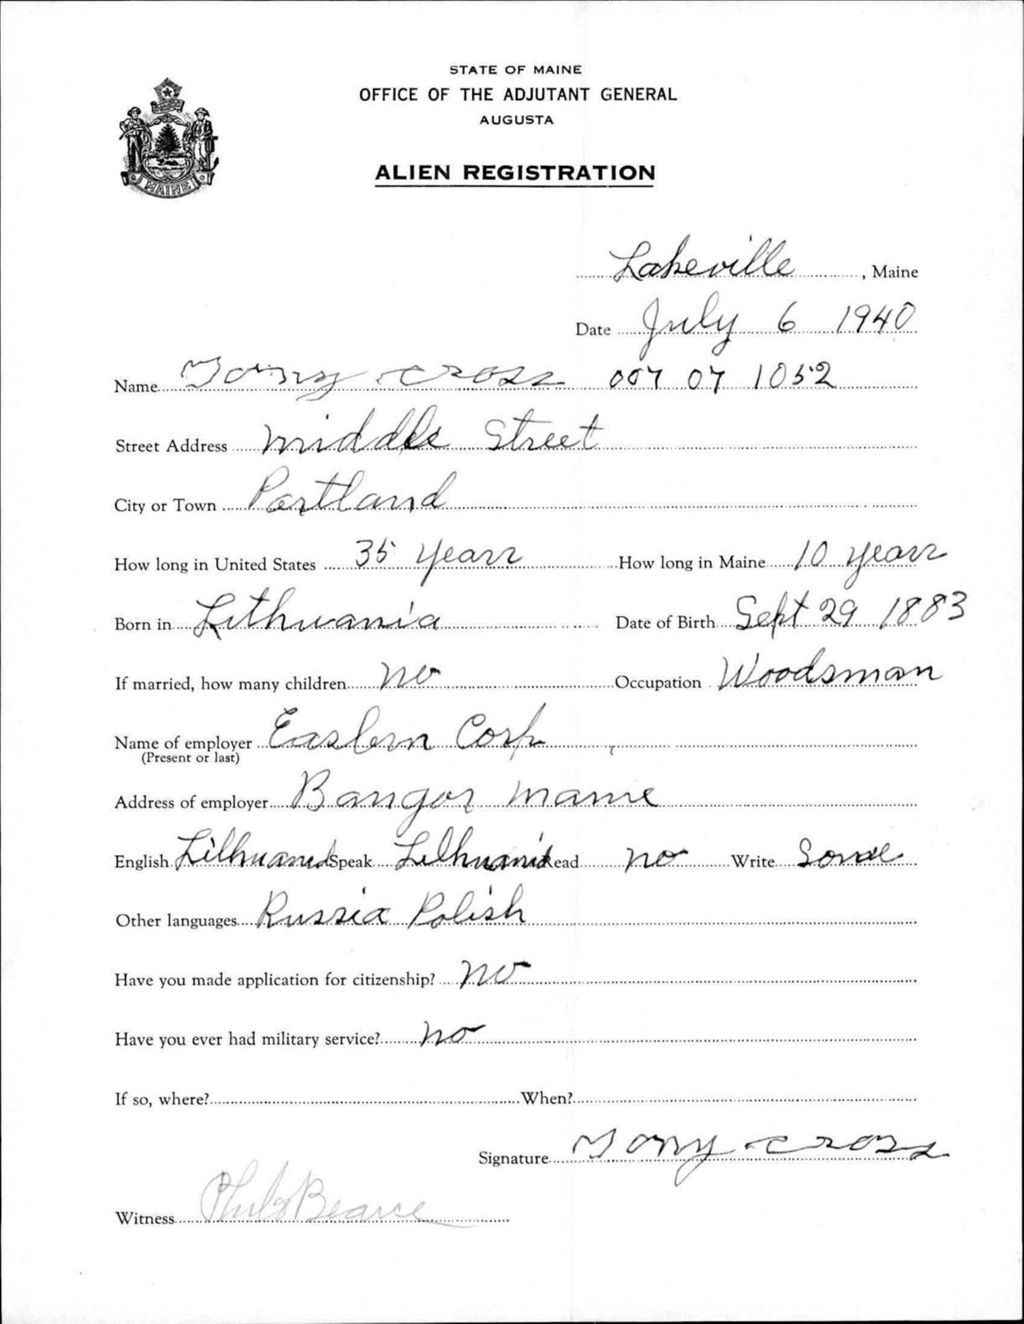 STATE OF MAINE
OFFICE OF THE ADJUTANT GENERAL
AUGUSTA
ALIEN REGISTRATION
MAINE
Lakeville, Maine
Date July 6 1940
Name Tony Cross 007 07 1052
Street Address Middle Street
City or Town Portland
How long in United States 35 years How long in Maine 10 years
Born in Lithuania Date of Birth Sept 29 1883
If married, how many children no Occupation Woodsman
Name of employer Eastern Corp
(Present or last)
Address of employer Bangor Maine
English Lithuania Speak Lithuania Read no Write Some
Other languages Russia Polish
Have you made application for citizenship? no
Have you ever had military service? no
If so, where? When?
Signature Tony Cross
Witness Bearce